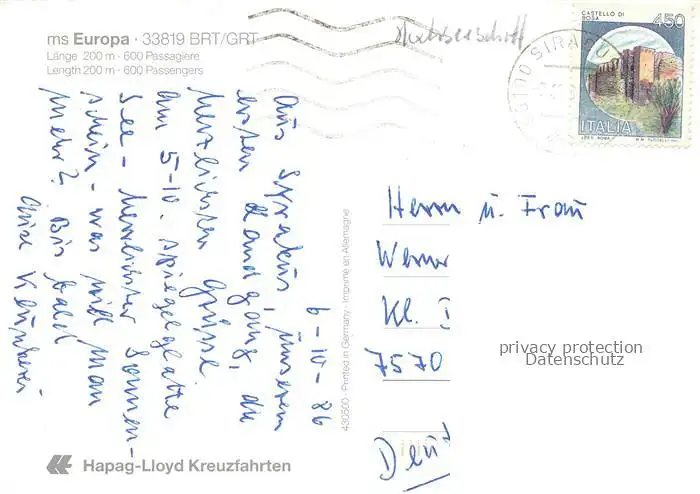 ms Europa · 33819 BRT/GRT
Länge 200 m · 600 Passagiere
Length 200 m · 600 Passengers
CASTELLO DI
ROSA
450
ITALIA
6-10-86
Aus Syrakus, unserem
Landgang, die
herzlichsten Grüsse
Am 5-10. spiegelglatte
See - herrlichster Sonnen-
schein - was will man
mehr? Bis bald
430500 · Printed in Germany · Imprimé en Allemagne
Herrn u. Frau
Werner
Kl.
7570
Deut
privacy protection
Datenschutz
Hapag-Lloyd Kreuzfahrten